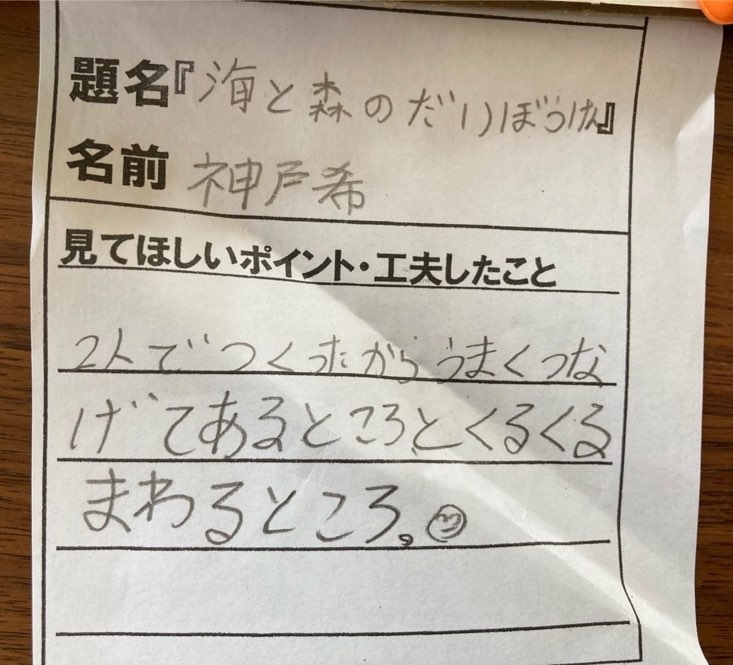 題名『海と森のだいぼうけん』
名前 神戸希
見てほしいポイント・工夫したこと
2人でつくったからうまくつな
げてあるところとくるくる
まわるところ。